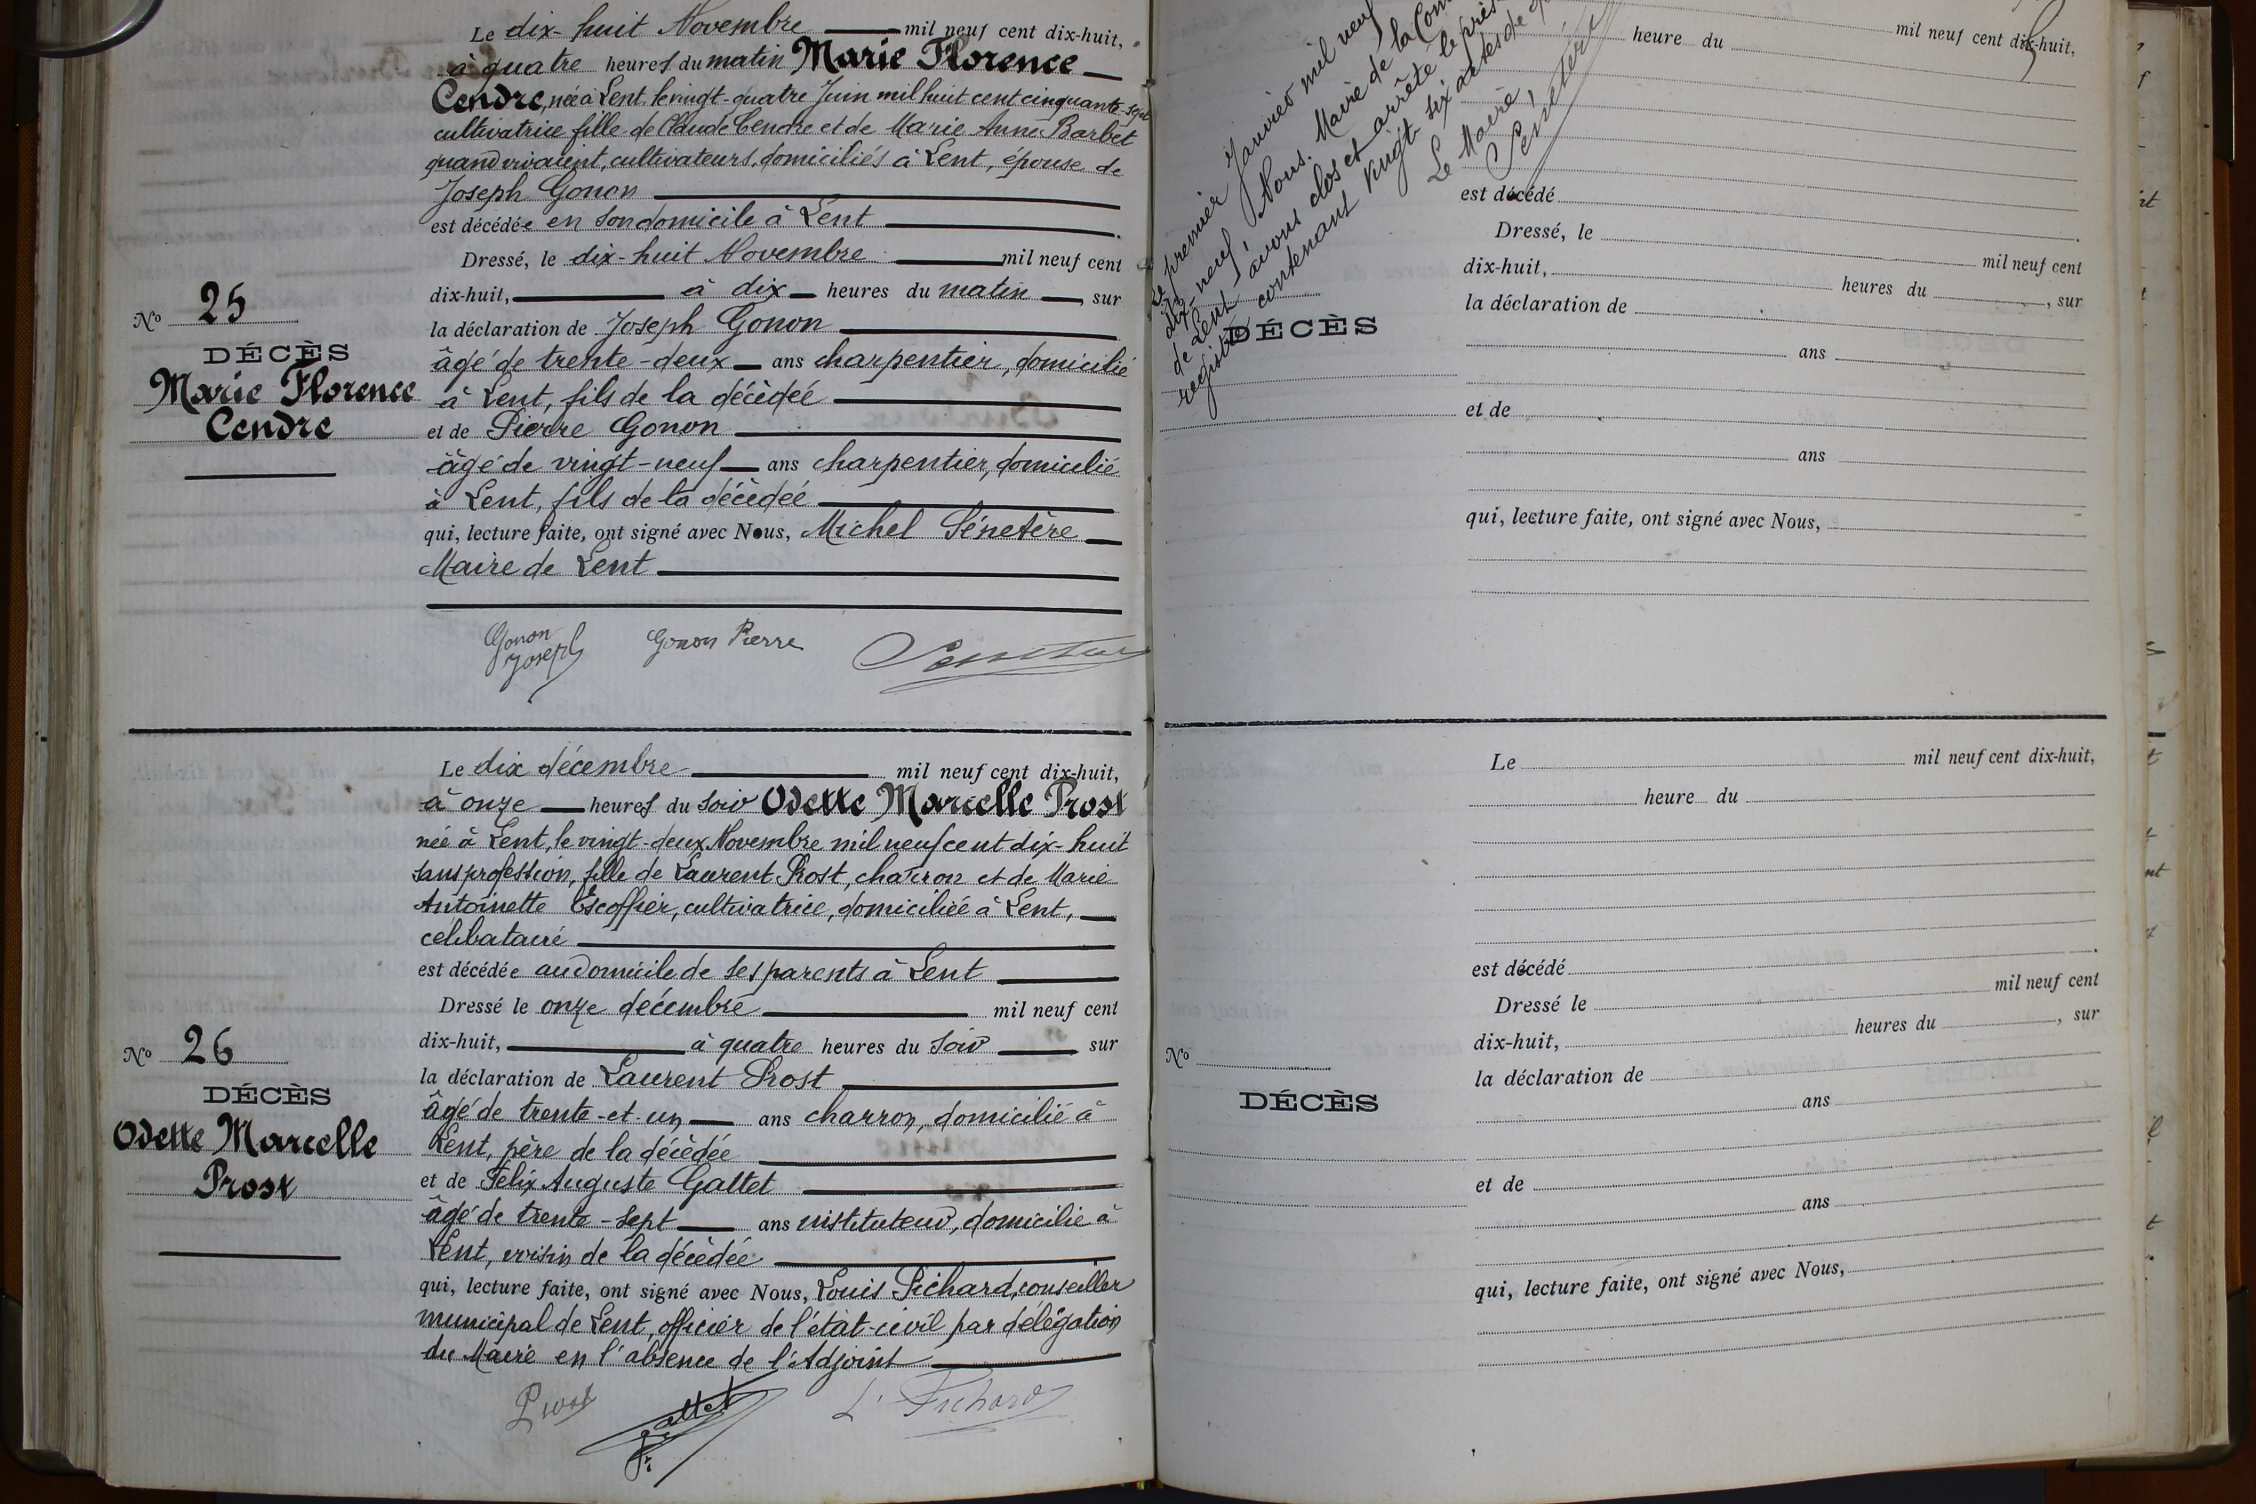 Le dix-huit Novembre mil neuf cent dix-huit,
à quatre heures du matin Marie Florence
Cendre, née à Lent, le vingt-quatre Juin mil huit cent cinquante-sept
cultivatrice fille de Claude Cendre et de Marie Anne Barbet
quand vivaient, cultivateurs, domiciliés à Lent, épouse de
Joseph Gonon
est décédée en son domicile à Lent
Dressé, le dix-huit Novembre mil neuf cent
dix-huit, à dix heures du matin, sur
la déclaration de Joseph Gonon
âgé de trente-deux ans charpentier, domicilié
à Lent, fils de la décédée
et de Pierre Gonon
âgé de vingt-neuf ans charpentier, domicilié
à Lent, fils de la décédée
qui, lecture faite, ont signé avec Nous, Michel Sénetère
Maire de Lent
No 25
DÉCÈS
Marie Florence
Cendre
Gonon
Joseph
Gonon Pierre
Le dix décembre mil neuf cent dix-huit,
à onze heures du soir Odette Marcelle Prost
née à Lent, le vingt-deux Novembre mil neuf cent dix-huit
sans profession, fille de Laurent Prost, charron et de Marie
Antoinette Escoffier, cultivatrice, domiciliée à Lent,
célibataire
est décédée au domicile de ses parents à Lent
Dressé le onze décembre mil neuf cent
dix-huit, à quatre heures du soir sur
la déclaration de Laurent Prost
âgé de trente-et-un ans charron, domicilié à
Lent, père de la décédée
et de Félix Auguste Gattet
âgé de trente-sept ans instituteur, domicilié à
Lent, voisin de la décédée
qui, lecture faite, ont signé avec Nous, Louis Pichard, conseiller
municipal de Lent, officier de l'état-civil par délégation
du Maire en l'absence de l'Adjoint
No 26
DÉCÈS
Odette Marcelle
Prost
Prost
Gattet
L. Pichard
Le premier Janvier mil neuf
dix-neuf, Nous, Maire de la Com
de Lent, avons clos et arrêté le prés
registre contenant vingt-six actes de
Le Maire,
Sénetère
mil neuf cent dix-huit,
heure du
est décédé
Dressé, le mil neuf cent
dix-huit, heures du , sur
la déclaration de
ans
et de
ans
qui, lecture faite, ont signé avec Nous,
DÉCÈS
Le mil neuf cent dix-huit,
heure du
est décédé
Dressé le mil neuf cent
dix-huit, heures du , sur
la déclaration de
ans
et de
ans
qui, lecture faite, ont signé avec Nous,
No
DÉCÈS